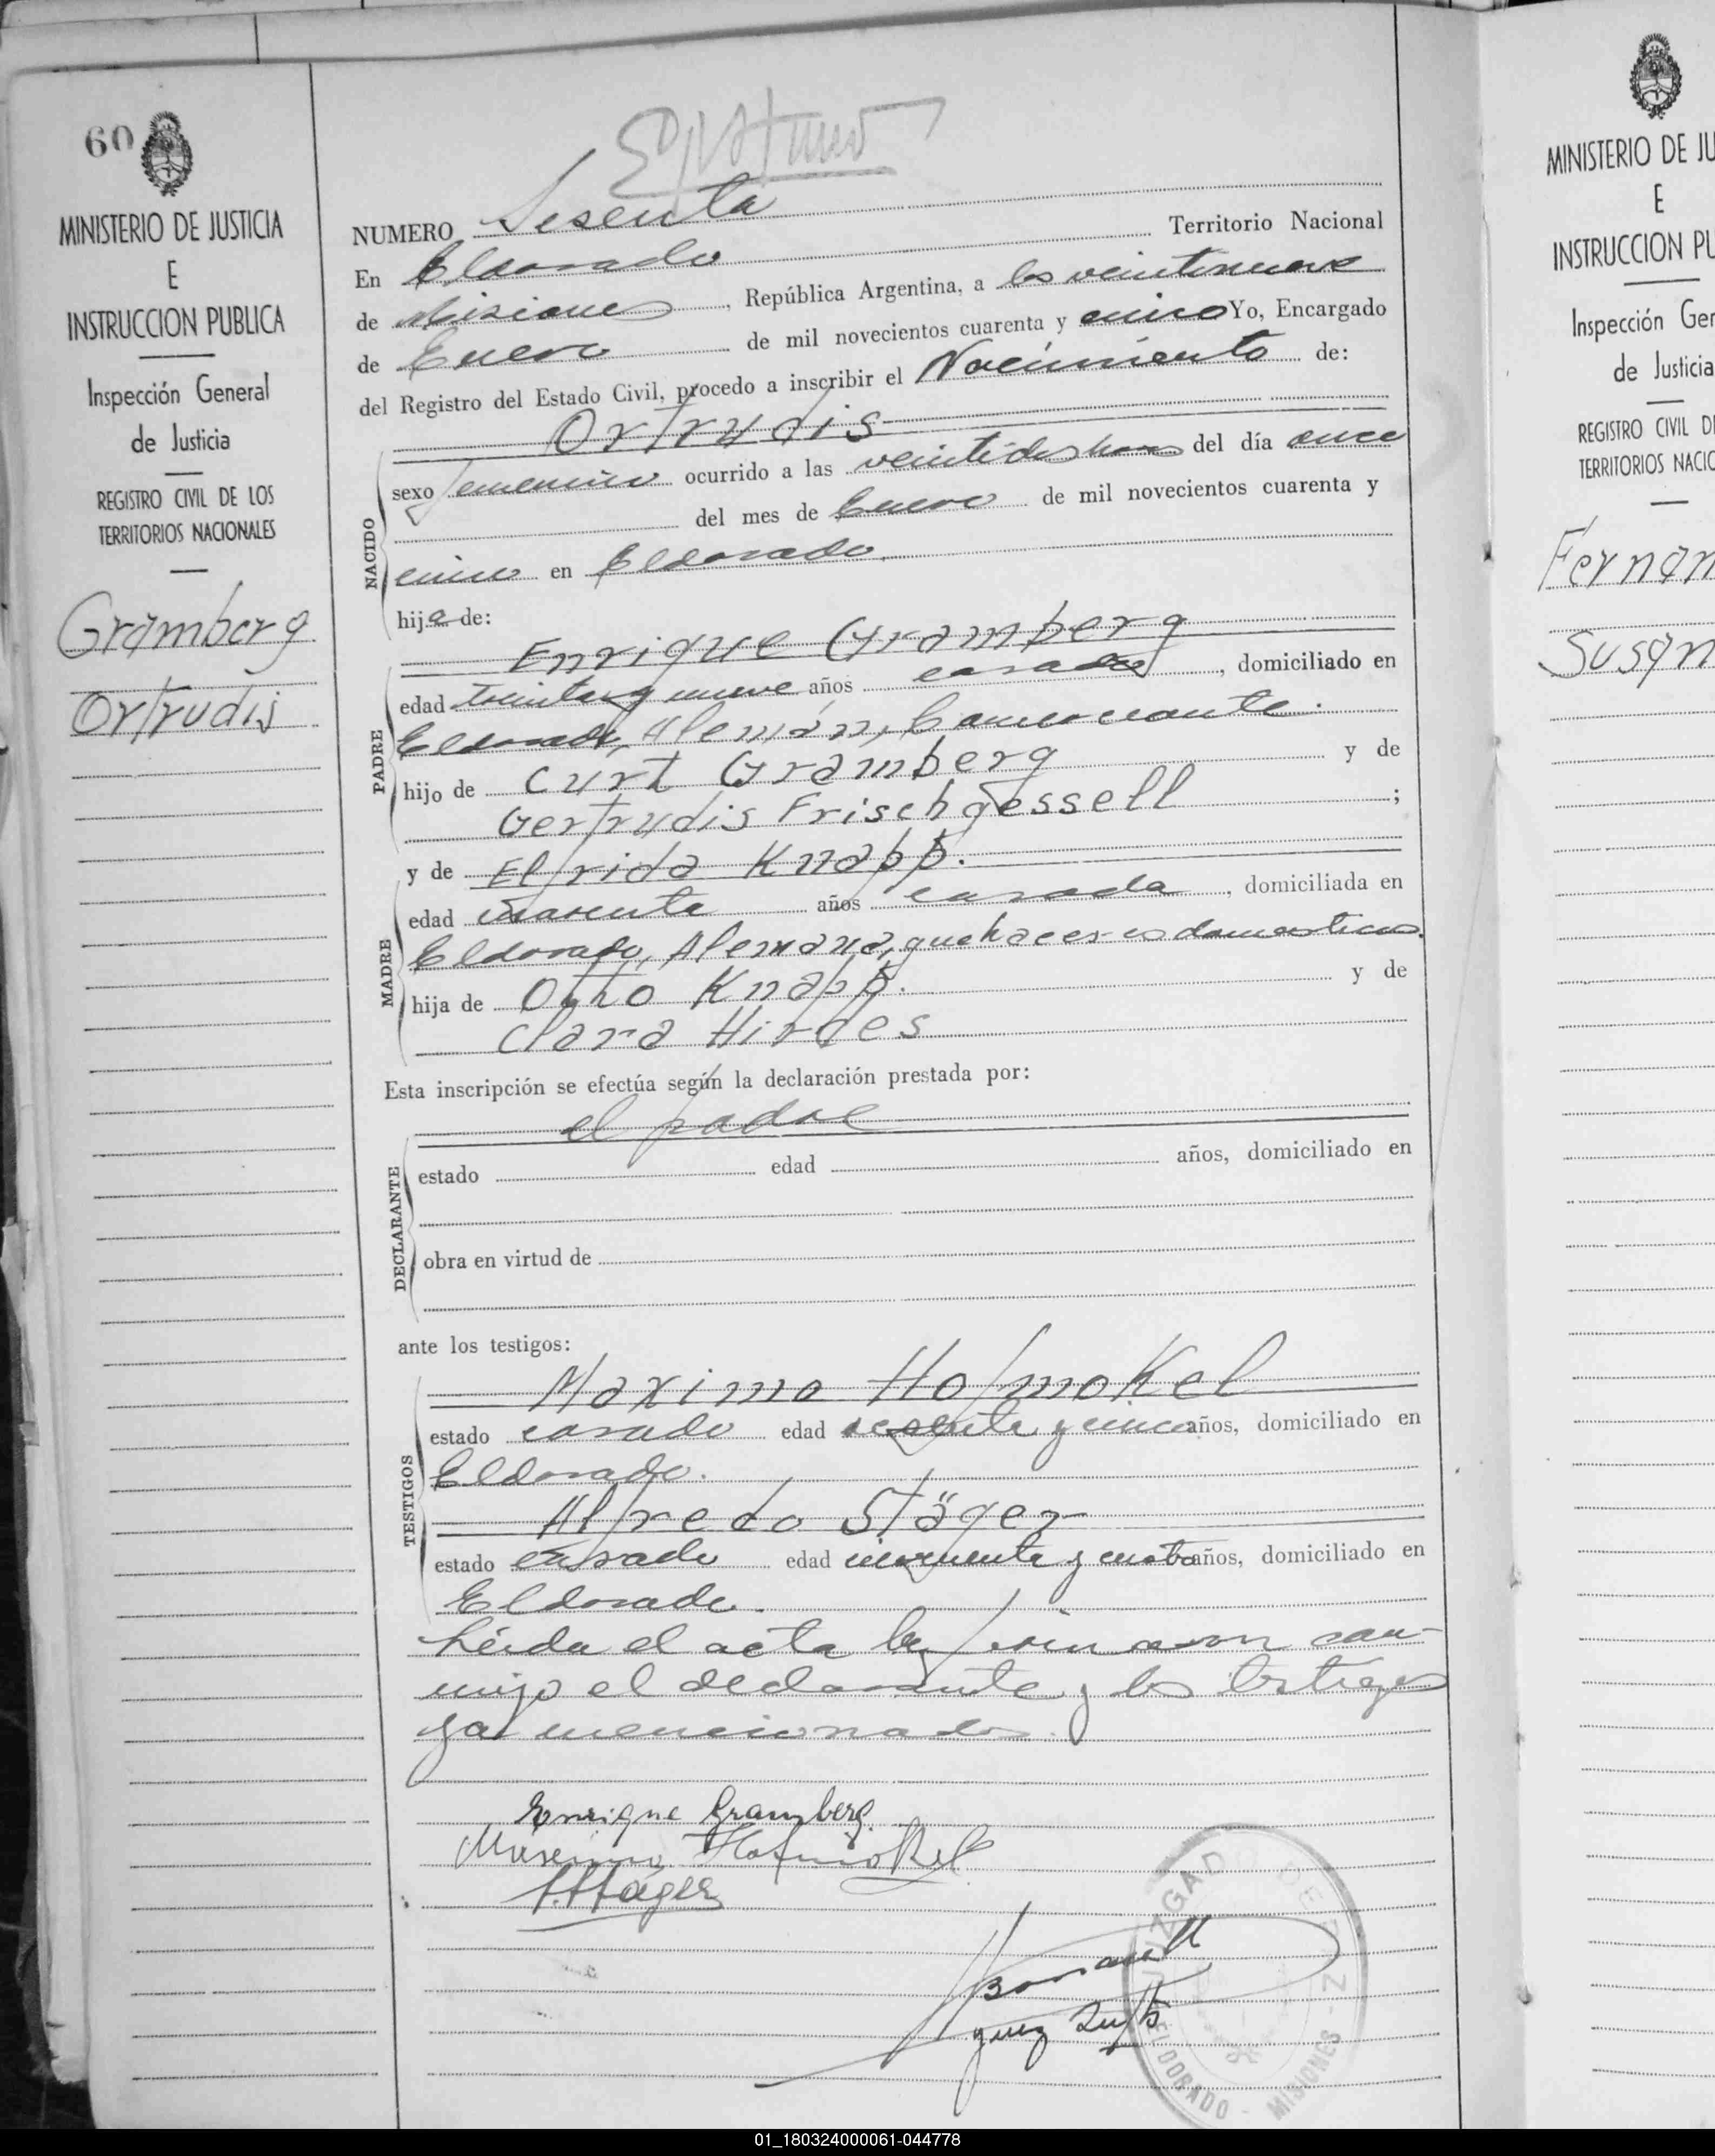 60
MINISTERIO DE JUSTICIA
E
INSTRUCCION PUBLICA
Inspección General
de Justicia
REGISTRO CIVIL DE LOS
TERRITORIOS NACIONALES
Gramberg
Ortrudis
NUMERO Sesenta
En Eldorado Territorio Nacional
de Misiones, República Argentina, a los veintinueve
de Enero de mil novecientos cuarenta y cinco Yo, Encargado
del Registro del Estado Civil, procedo a inscribir el Nacimiento de:
Ortrudis
NACIDO
sexo femenino ocurrido a las veintidos horas del día once
del mes de Enero de mil novecientos cuarenta y
cinco en Eldorado.
hija de:
Enrique Gramberg
PADRE
edad treinta y nueve años casado, domiciliado en
Eldorado, Alemán, Comerciante.
hijo de Curt Gramberg y de
Gertrudis Frischgessell;
y de Elfrida Knapp.
MADRE
edad cuarenta años casada, domiciliada en
Eldorado, Alemana, quehaceres domesticos.
hija de Otto Knapp. y de
Clara Hirdes
Esta inscripción se efectúa según la declaración prestada por:
el padre
DECLARANTE
estado edad años, domiciliado en
obra en virtud de
ante los testigos:
Maximo Hofmokel
TESTIGOS
estado casado edad sesenta y cinco años, domiciliado en
Eldorado.
Alfredo Stäger
estado casado edad cincuenta y cuatro años, domiciliado en
Eldorado.
Leída el acta la firmaron con-
migo el declarante y los testigos
ya mencionados.
Enrique Gramberg.
Maximo Hofmokel
A. Stäger
JUZGADO DE
ELDORADO - MISIONES
MINISTERIO DE JU
E
INSTRUCCION PU
Inspección Ger
de Justicia
REGISTRO CIVIL D
TERRITORIOS NACIO
Fernan
Susan
01_180324000061-044778